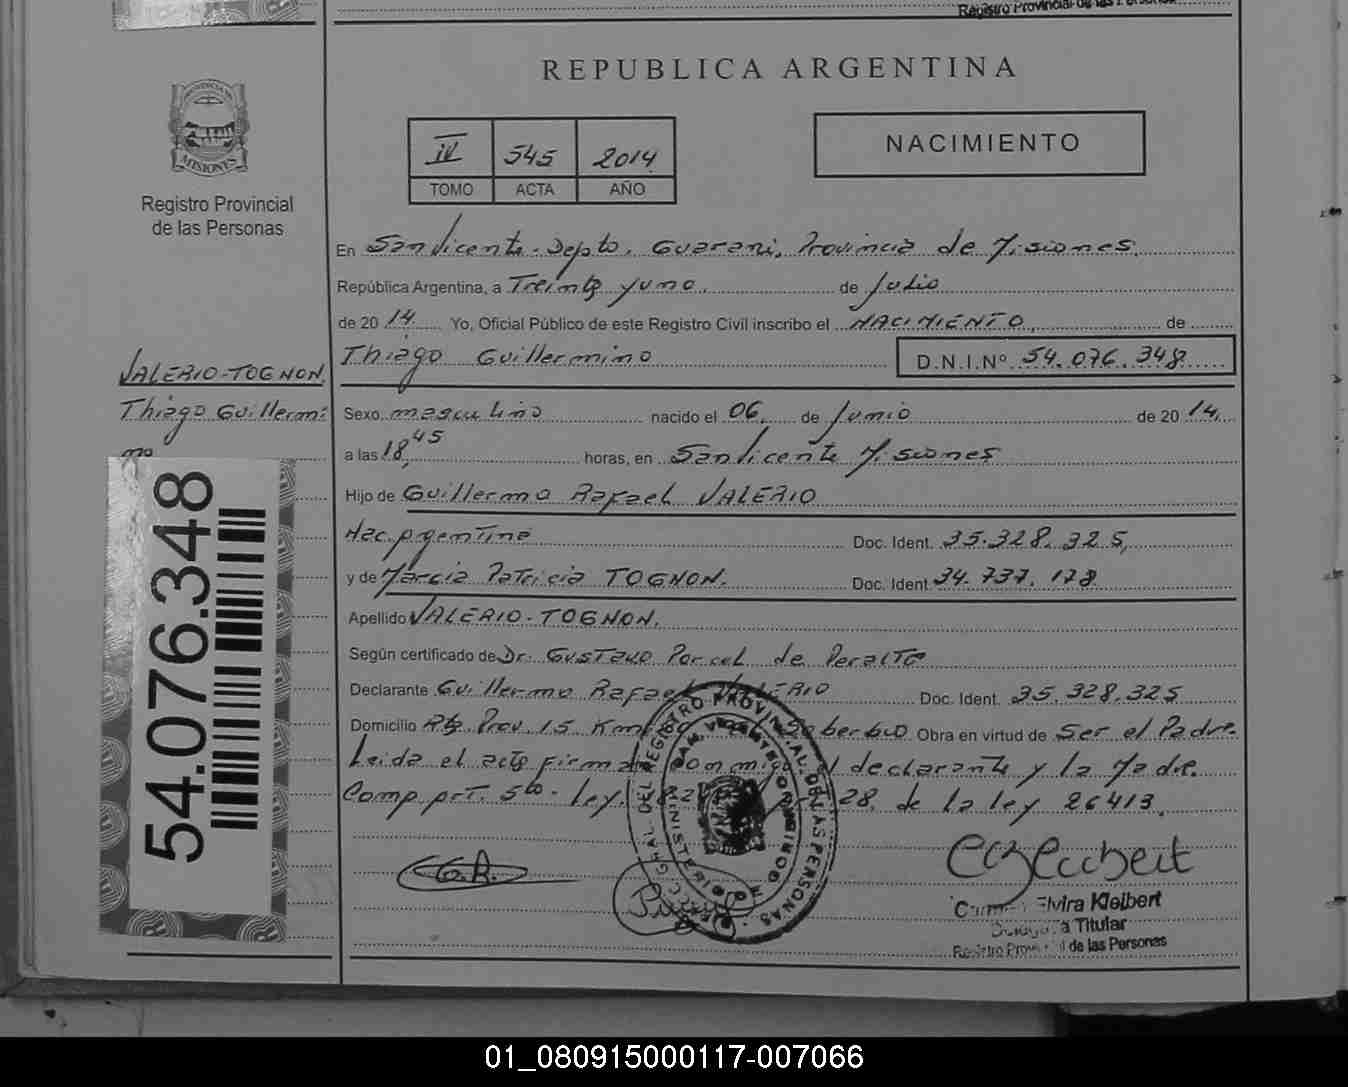 Registro Provincial de las Personas
REPUBLICA ARGENTINA
PROVINCIA DE
MISIONES
Registro Provincial
de las Personas
IV 545 2014
TOMO ACTA AÑO
NACIMIENTO
En San Vicente - Depto. Guarani, Provincia de Misiones.
República Argentina, a Treinta y uno. de Julio
de 20 14 Yo, Oficial Público de este Registro Civil inscribo el NACIMIENTO, de
Thiago Guillermino D.N.I.Nº 54.076.348
VALERIO-TOGNON.
Thiago Guillermi
no
Sexo masculino nacido el 06, de Junio de 20 14.
a las 18,45 horas, en San Vicente Misiones
Hijo de Guillermo Rafael VALERIO
Nac. Argentina Doc. Ident. 35.328.325,
y de Marcia Patricia TOGNON. Doc. Ident 34.737.178
Apellido VALERIO-TOGNON.
Según certificado de Dr. Gustavo Porcel de Peralta
Declarante Guillermo Rafael VALERIO Doc. Ident. 35.328.325
Domicilio Rta. Prov. 15 Km Soberbio Obra en virtud de Ser el Padre.
Leida el acta firma conmigo el declarante y la Madre.
Comp. art. 5to. ley. 28. de la ley 26413.
54.076.348
G.R.
Elvira Kleibert
Titular
Registro Provincial de las Personas
01_080915000117-007066